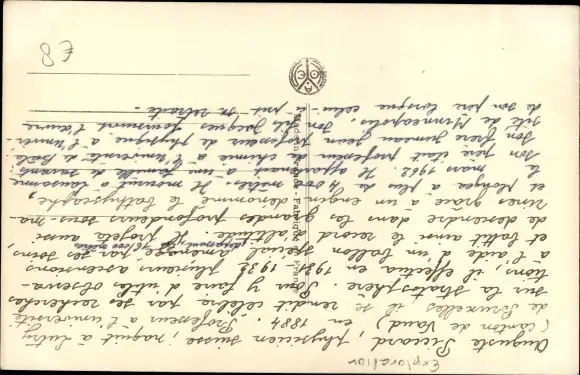 Exploration
Auguste Piccard, physicien suisse, naquit à Lutry
(Canton de Vaud) en 1884. Professeur à l'université
de Bruxelles il se rendit célèbre par ses recherches
sur la stratosphère. Pour y faire d'utiles observa-
tions, il effectua en 1931, 1932 plusieurs ascensions
à l'aide d'un ballon spécial aménagé par ses soins,
et battit aussi le record d'altitude. Il projeta aussi
16.000 mètres
de descendre dans les grandes profondeurs sous-ma-
rines grâce à un engin dénommé le bathyscaphe,
et plongea à plus de 4 000 mètres. Il mourut à Lausanne
le mars 1962. Il appartenait à une famille de savants
son père était professeur de chimie à l'Université de Bâle
son frère jumeau Jean professeur de physique à l'Univer-
sité de Minneapolis. Son fils Jacques poursuivit l'œuvre
de son père lorsque celui-ci prit sa retraite.
€8